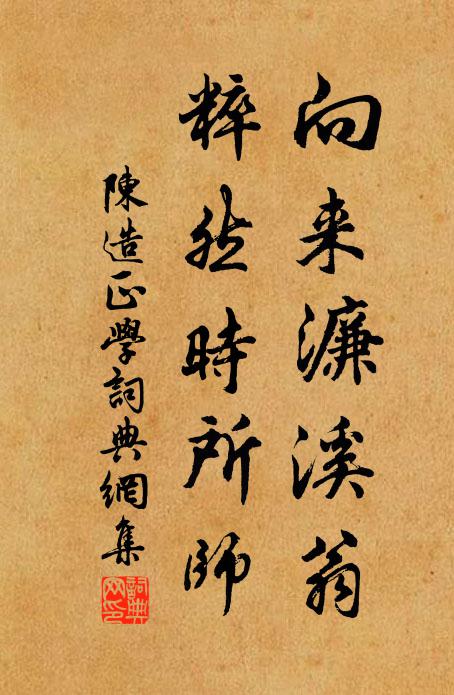 向来濂溪翁
粹然時所師
陳造正學詞典網集
詞典網印